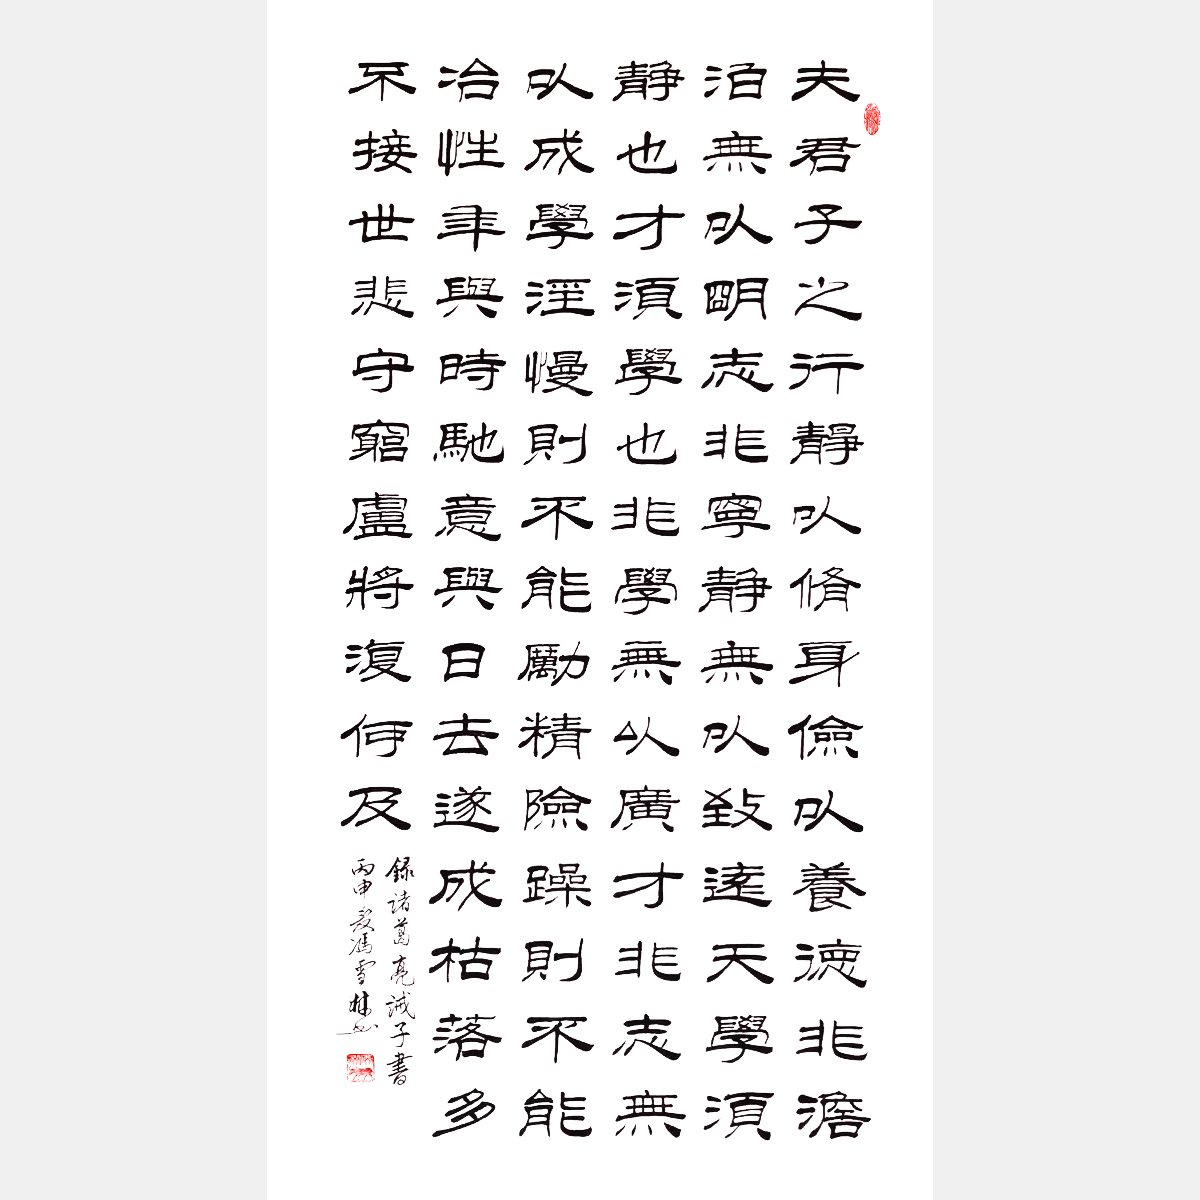 夫君子之行靜以脩身儉以養德非澹
泊無以明志非寧静無以致遠天學須
静也才須學也非學無以廣才非志無
以成學淫慢則不能勵精險躁則不能
冶性年與時馳意與日去遂成枯落多
不接世悲守窮盧將復何及
録諸葛亮誡子書
丙申夏馮雪林书